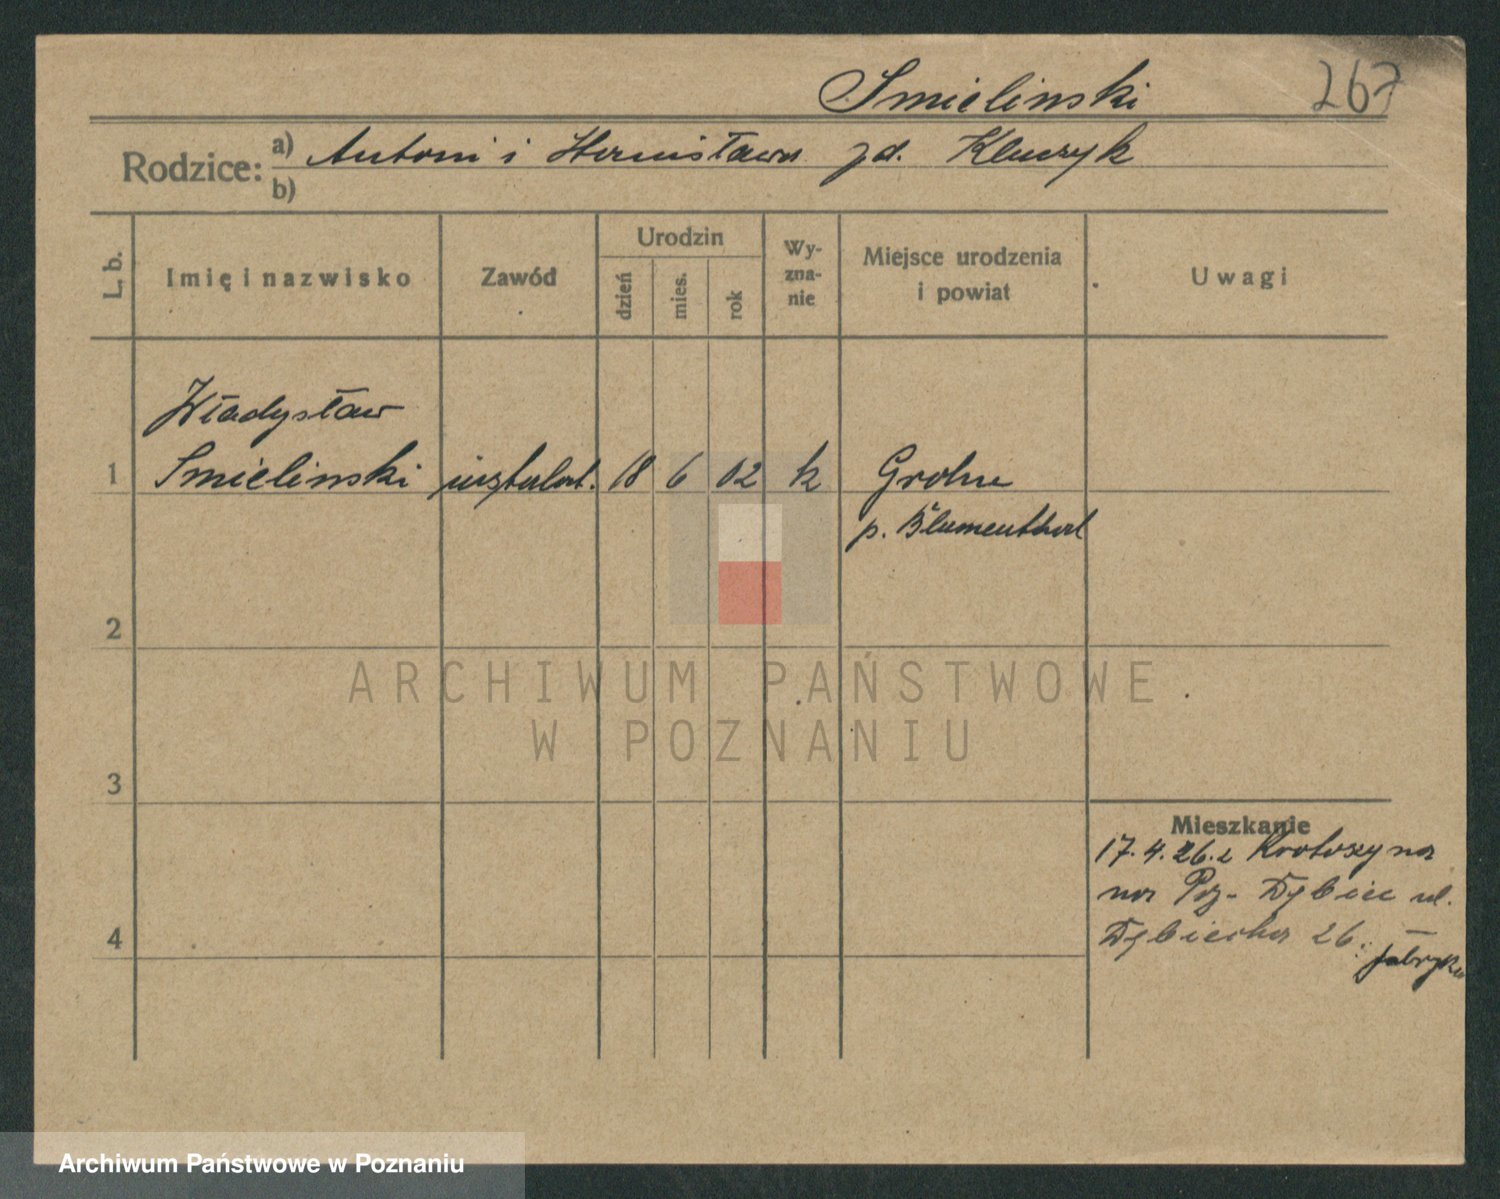 Smielinski
267
Rodzice: a) Antoni i Stanisława zd. Kluczyk
b)
L. b.
Imię i nazwisko
Zawód
Urodzin
dzień
mies.
rok
Wy-
zna-
nie
Miejsce urodzenia
i powiat
Uwagi
Władysław
1 Smielinski instalat. 18 6 02 k Grohn
p. Blumenthal
2
ARCHIWUM PAŃSTWOWE
W POZNANIU
3
Mieszkanie
17.4.26. z Krotoszyna
na Poz- Dębiec ul.
4
Dębiecka 26.
fabryka
Archiwum Państwowe w Poznaniu